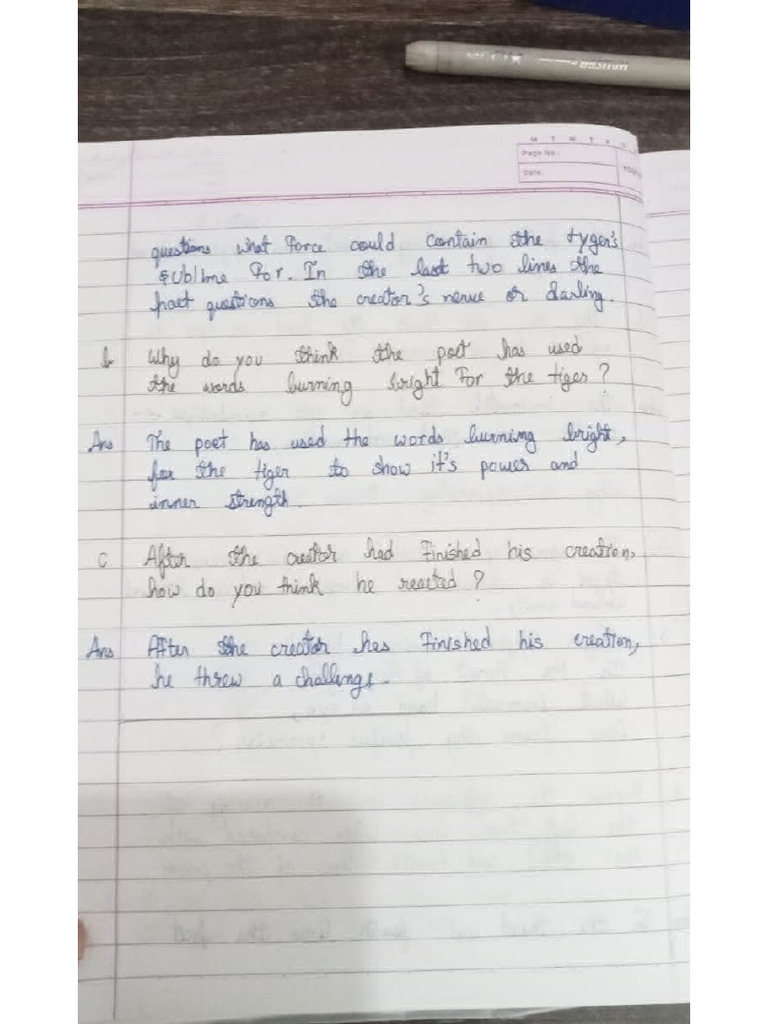 M T W T F S
Page No.:
Date:
YOU
questions what force could contain the tyger's
sublime for. In the last two lines the
poet questions the creator's nerue or darling.
b Why do you think the poet has used
the words burning bright for the tiger?
Ans The poet has used the words burning bright,
for the tiger to show it's power and
inner strength.
C After the creator had finished his creation,
how do you think he reacted?
Ans After the creator has finished his creation,
he threw a challenge.